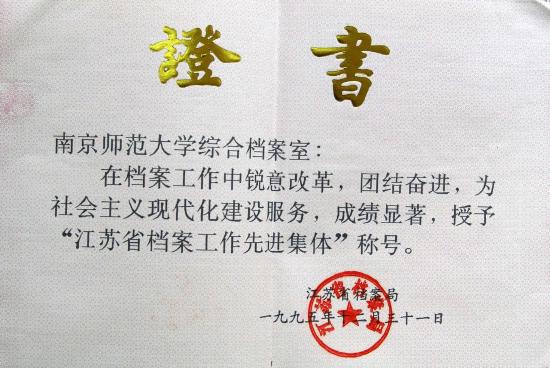 證書
南京师范大学综合档案室：
在档案工作中锐意改革，团结奋进，为
社会主义现代化建设服务，成绩显著，授予
“江苏省档案工作先进集体”称号。
江苏省档案局
一九九五年十二月三十一日
江苏省档案局